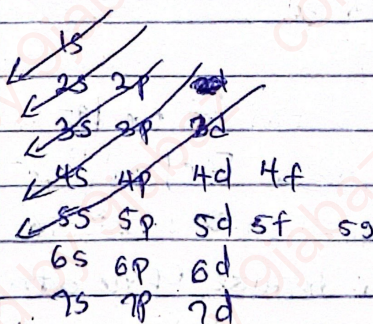 1s
2s 2p
3s 3p 3d
4s 4p 4d 4f
5s 5p 5d 5f 5g
6s 6p 6d
7s 7p 7d